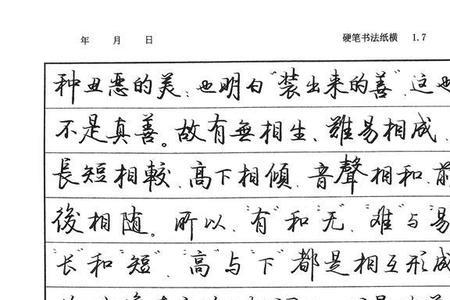 年 月 日 硬笔书法纸横 1.7
种丑恶的美、也明白“装出来的善”，这也
不是真善。故有無相生、難易相成、
長短相較、高下相傾、音聲相和、前
後相随。所以、“有”和“无”、“难”与“易
“长”和“短”、“高”与“下”都是相互形成